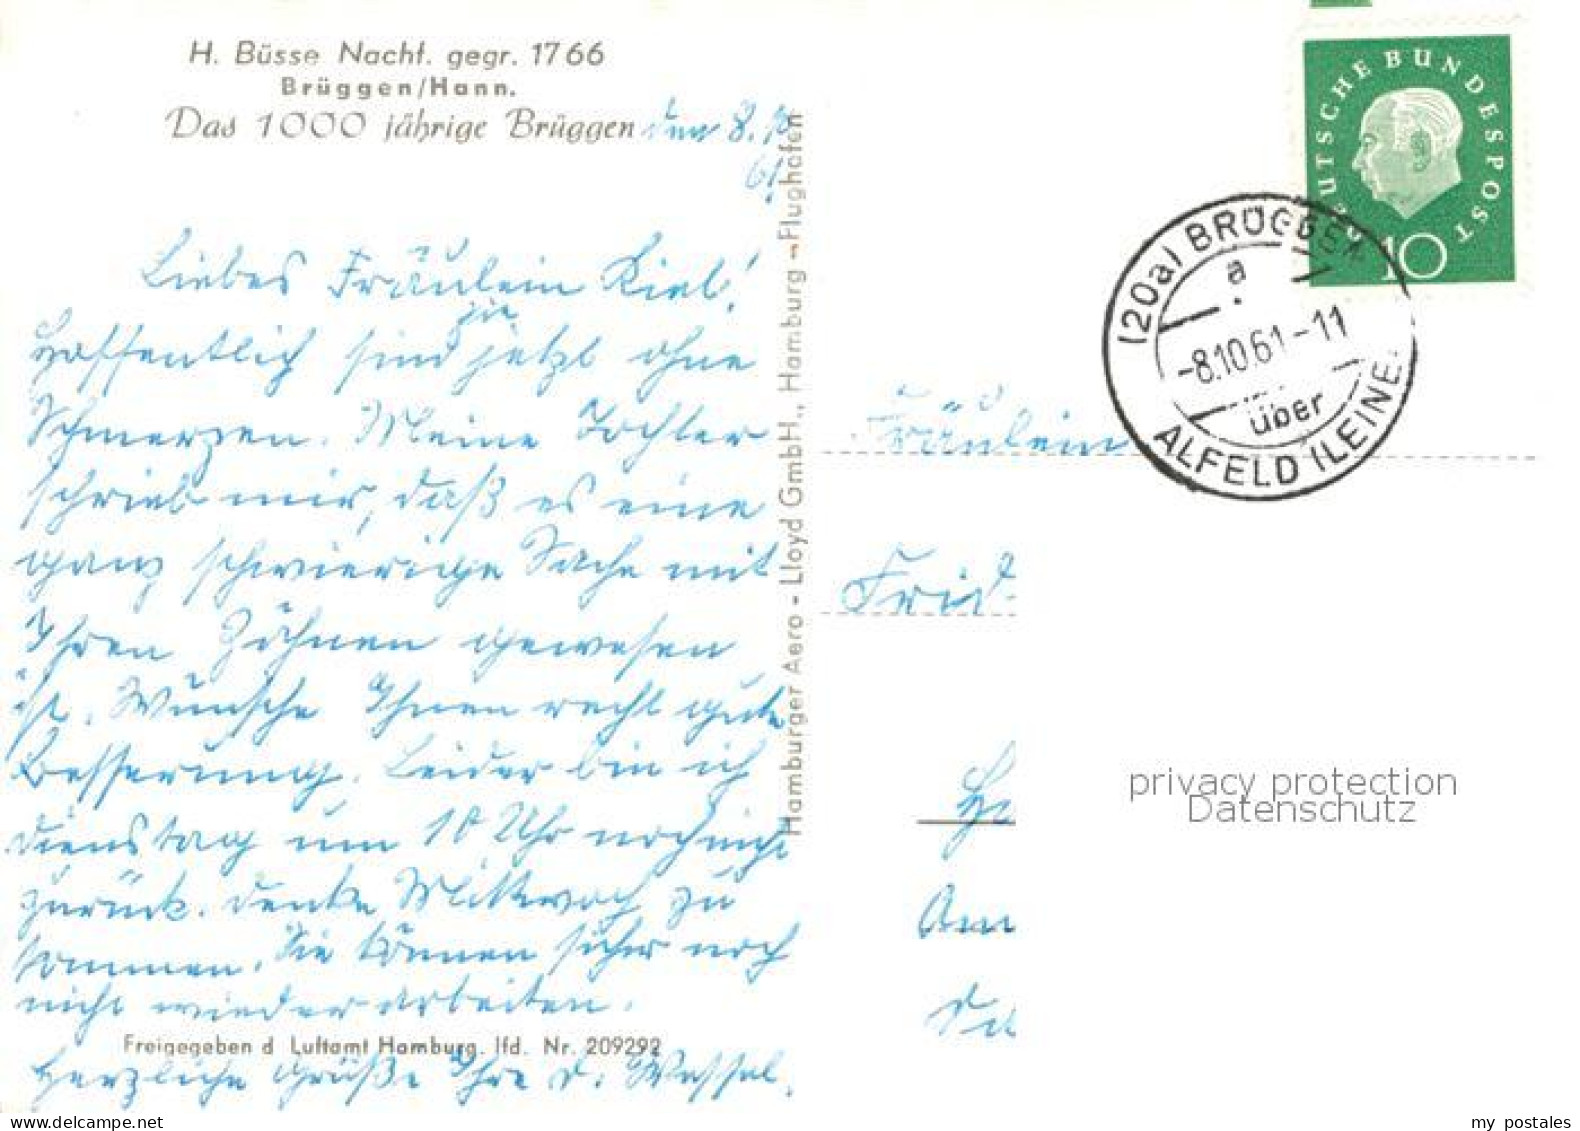 H. Büsse Nachf. gegr. 1766
Brüggen/Hann.
Das 1000 jährige Brüggen den 8.10
61.
Liebes Fräulein Kiel!
Hoffentlich sind Sie jetzt ohne
Schmerzen. Meine Tochter
schrieb mir, daß es eine
ganz schwierige Sache mit
Ihren Zähnen gewesen
ist. Wünsche Ihnen recht gute
Besserung. Leider bin ich
Dienstag um 10 Uhr noch nicht
zurück. Denke Mittwoch zu
kommen. Sie können sicher noch
nicht wieder arbeiten.
Freigegeben d Luftamt Hamburg. lfd. Nr. 209292
Herzliche Grüße Ihre D. Wessel.
Hamburger Aero - Lloyd GmbH., Hamburg - Flughafen
DEUTSCHE BUNDESPOST
10
(20a) BRÜGGEN
a
-8.10.61-11
über
ALFELD (LEINE)
Fräulein
Am
privacy protection
Datenschutz
www.delcampe.net
my_postales